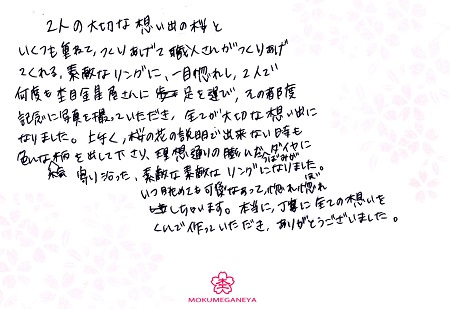 2人の大切な想い出の桜と
いくつも重ねて、つくりあげて職人さんがつくりあげ
てくれる、素敵なリングに、一目惚れし、2人で
何度も杢目金屋さんに足を運び、その都度
記念に写真を撮っていただき、全てが大切な想い出に
なりました。上手く、桜の花の説明が出来ない時も
色んな柄を出して下さり、理想通りの膨らんだダイヤに
つぼみが
寄り沿った、素敵な素敵なリングになりました。
いつ眺めても可愛なあって、惚れ惚れ
ぼ
しちゃいます。本当に、丁寧に全ての想いを
くんで作っていただき、ありがとうございました。
MOKUMEGANEYA